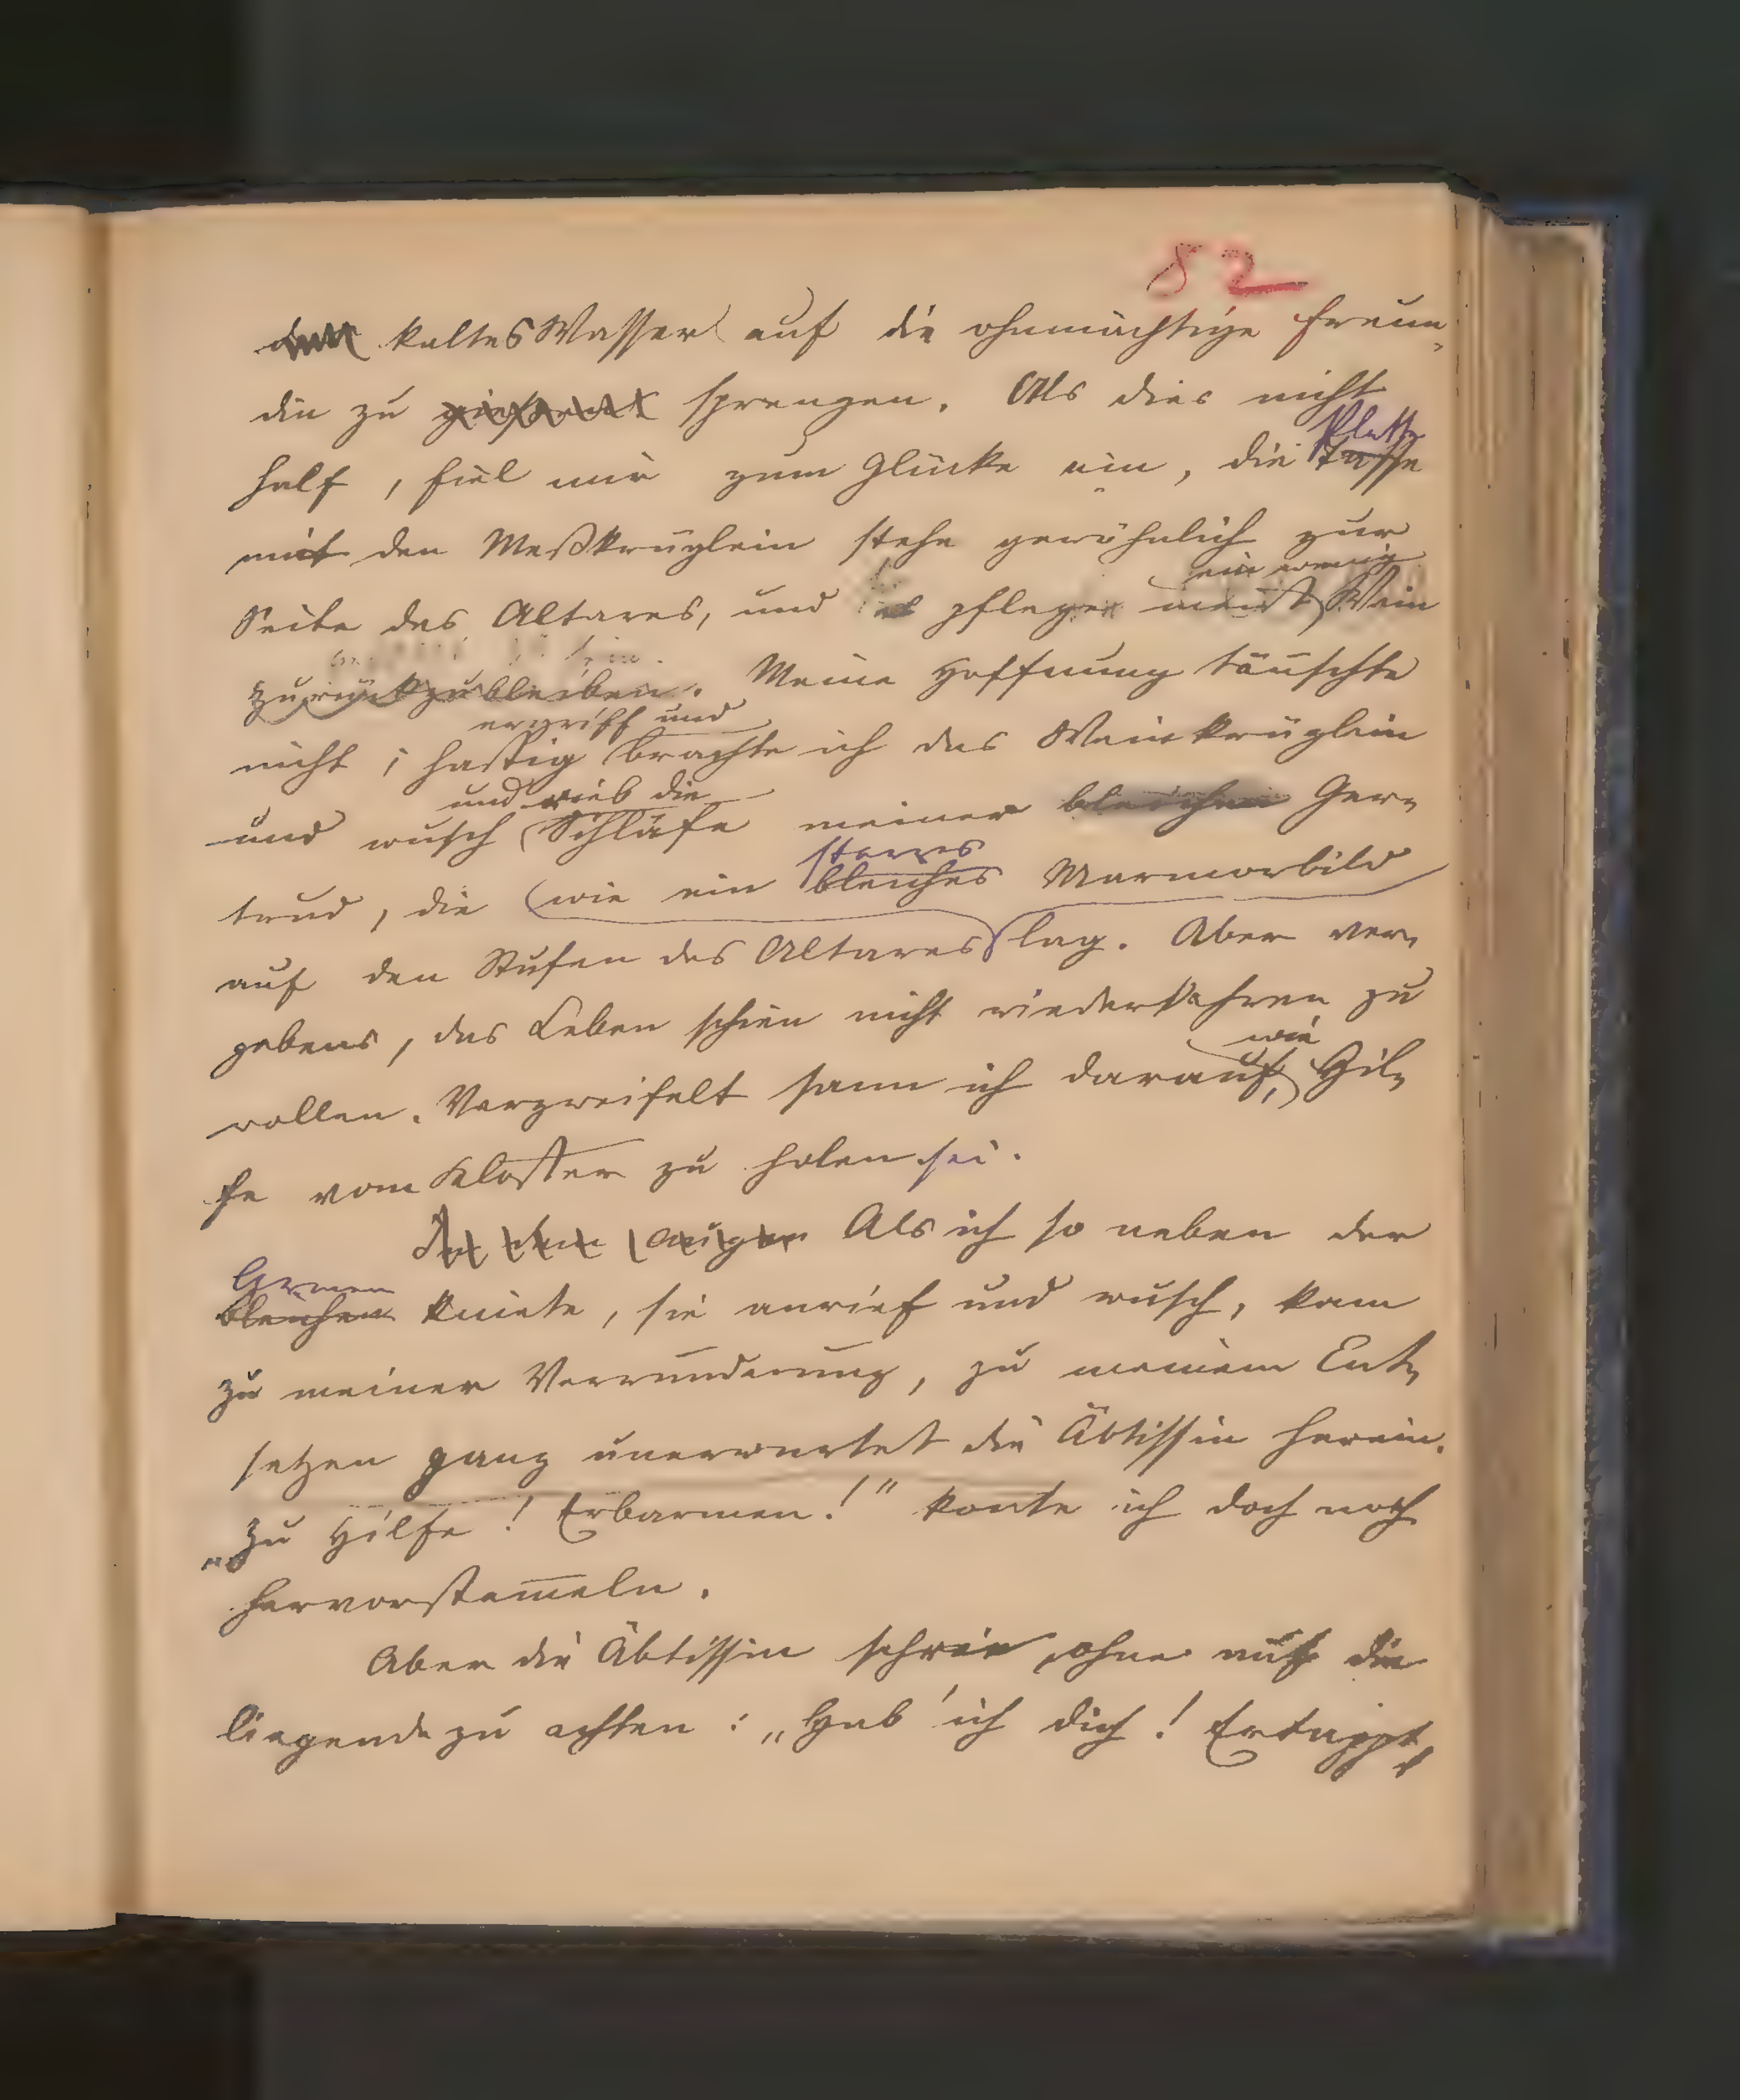 82
kaltes Wasser auf die ohnmächtige Freun-
din zu sprengen. Als dies nicht
Platte
half, fiel mir zum Glücke ein, die Tasse
mit den Meßkrüglein stehe gewöhnlich zur
ein wenig
Seite des Altares, und es pflege meist Wein
zurückzubleiben. Meine Hoffnung täuschte
ergriff und
nicht; hastig brachte ich das Weinkrüglein
und rieb die
und wusch Schläfe meiner bleichen Ger-
starres
trud, die wie ein bleiches Marmorbild
auf den Stufen des Altares lag. Aber ver-
gebens, das Leben schien nicht wiederkehren zu
wie
wollen. Verzweifelt sann ich darauf, Hil-
fe vom Kloster zu holen sei.
Als ich so neben der
Armen
bleichen kniete, sie anrief und wusch, kam
zu meiner Verwunderung, zu meinem Ent-
setzen ganz unerwartet die Äbtissin herein.
„Zu Hilfe! Erbarmen!" konte ich doch noch
hervorstam̅eln.
Aber die Äbtissin schrie, ohne auf die
liegende zu achten: „Hab' ich dich! Ertappt,